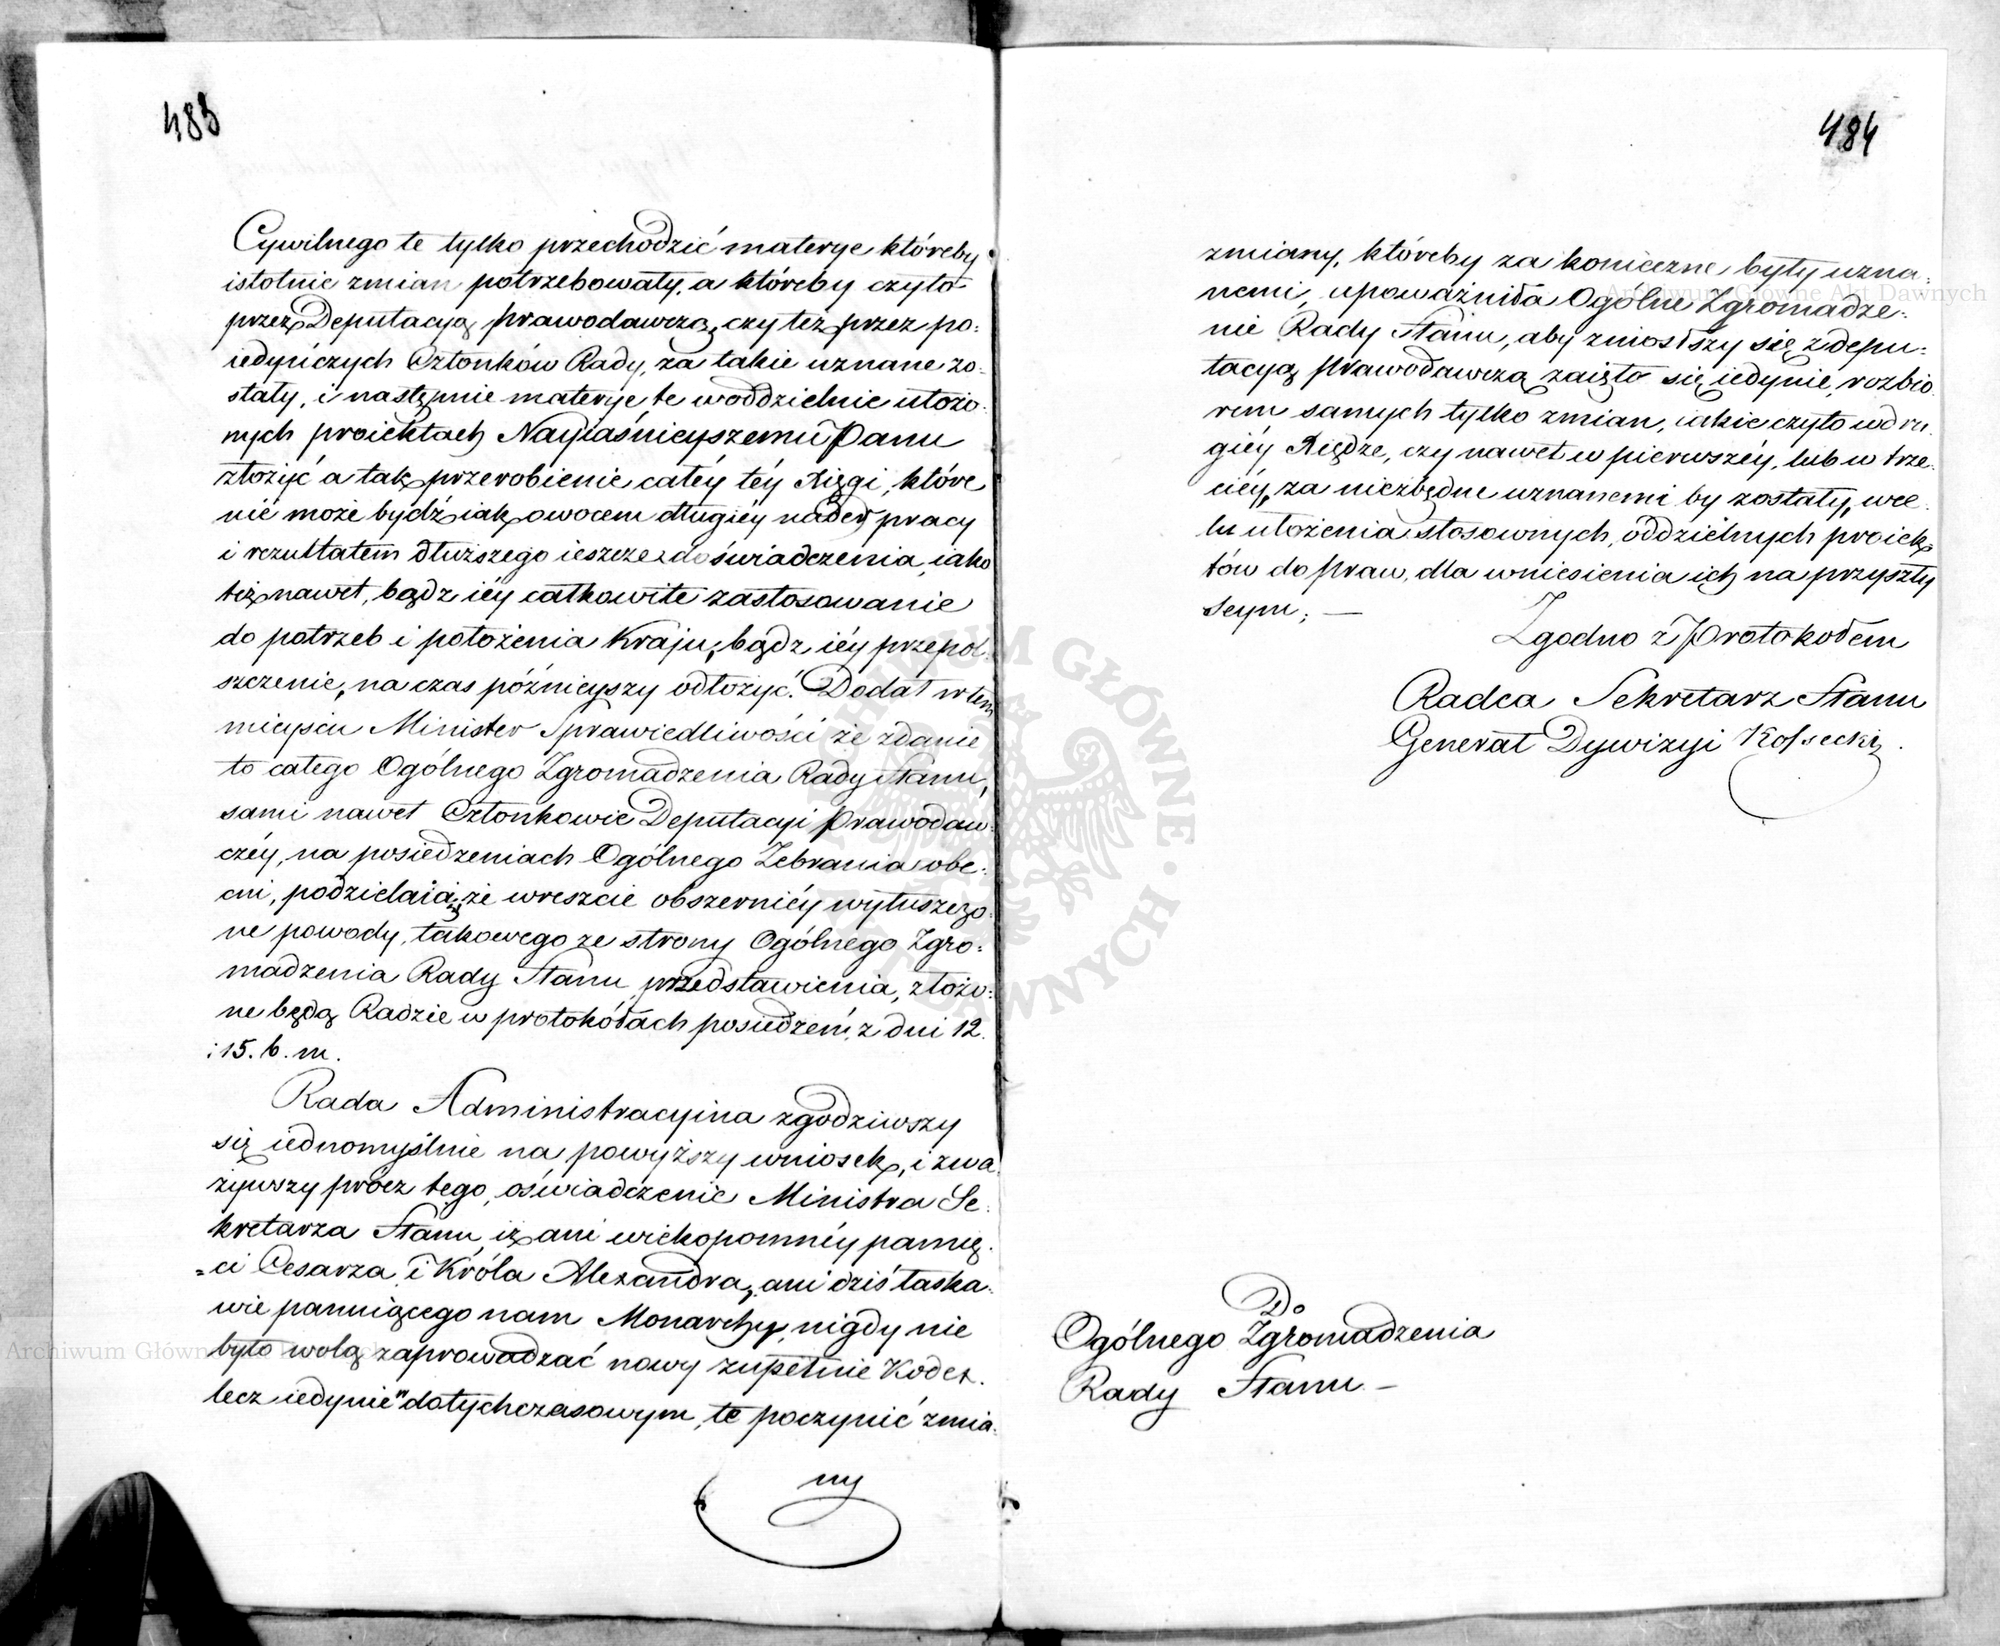 483
Cywilnego te tylko przechodzić materye któreby
istotnie zmian potrzebowały, a któreby czyto
przez Deputacyą prawodawczą, czy też przez po:
iedyńczych Członków Rady, za takie uznane zo:
stały, i następnie materye te w oddzielnie ułożo:
nych proiektach Nayiaśnieyszemu Panu
złożyć a tak przerobienie całéy téy Xięgi, które
nie może bydź iak owocem długiéy nader pracy
i rezultatem dłuższego ieszcze doświadczenia, iako
też nawet, bądz iéy całkowite zastosowanie
do potrzeb i położenia Kraju, bądz iéy przepol:
szczenie, na czas późnieyszy odłożyć. Dodał w tem
mieyscu Minister Sprawiedliwości że zdanie
to całego Ogólnego Zgromadzenia Rady Stanu,
sami nawet Członkowie Deputacyi Prawodaw:
czéy, na posiedzeniach Ogólnego Zebrania obe:
cni, podzielaią, że wreszcie obszerniéy wyłuszczo:
ne powody, takowego ze strony Ogólnego Zgro:
madzenia Rady Stanu przedstawienia, złożo:
ne będą Radzie w protokółach posiedzeń, z dni 12.
i 15. b. m.
Rada Administracyina zgodziwszy
się iednomyślnie na powyższy wniosek, i zwa:
żywszy prócz tego, oświadczenie Ministra Se:
kretarza Stanu, iż ani wiekopomnéy pamię:
=ci Cesarza i Króla Alexandra, ani dziś łaska:
wie panuiącego nam Monarchy, nigdy nie
było wolą zaprowadzać nowy zupełnie Kodex.
lecz iedynie w dotychczasowym, te poczynić zmia:
ny
484
zmiany, któreby za konieczne były uzna:
nemi, upoważniła Ogólne Zgromadze:
nie Rady Stanu, aby zniosłszy się z depu:
tacyą Prawodawczą zaięło się iedynie, rozbio:
rem samych tylko zmian, iakie czyto w dru:
giéy Xiędze, czy nawet w pierwszéy, lub w trze:
ciéy, za niezbędne uznanemi by zostały, wce:
lu ułożenia stosownych, oddzielnych proiek:
tów do praw, dla wniesienia ich na przyszły
Seym; —
Zgodno z Protokołem
Radca Sekretarz Stanu
Generał Dywizyi Kossecki.
Do
Ogólnego Zgromadzenia
Rady Stanu. —
Archiwum Główne Akt Dawnych